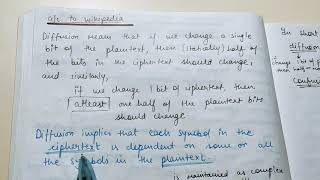 a/c to wikipedia
Diffusion means that if we change a single
bit of the plaintext, then (statically) half of
the bits in the ciphertext should change,
and similarly,
if we change 1 bit of ciphertext then
atleast one half of the plaintext bits
should change
Diffusion implies that each symbol in the
ciphertext is dependent on some or all
the symbols in the plaintext.
is maintained as complex
In short
diffusion
change 1 bit of